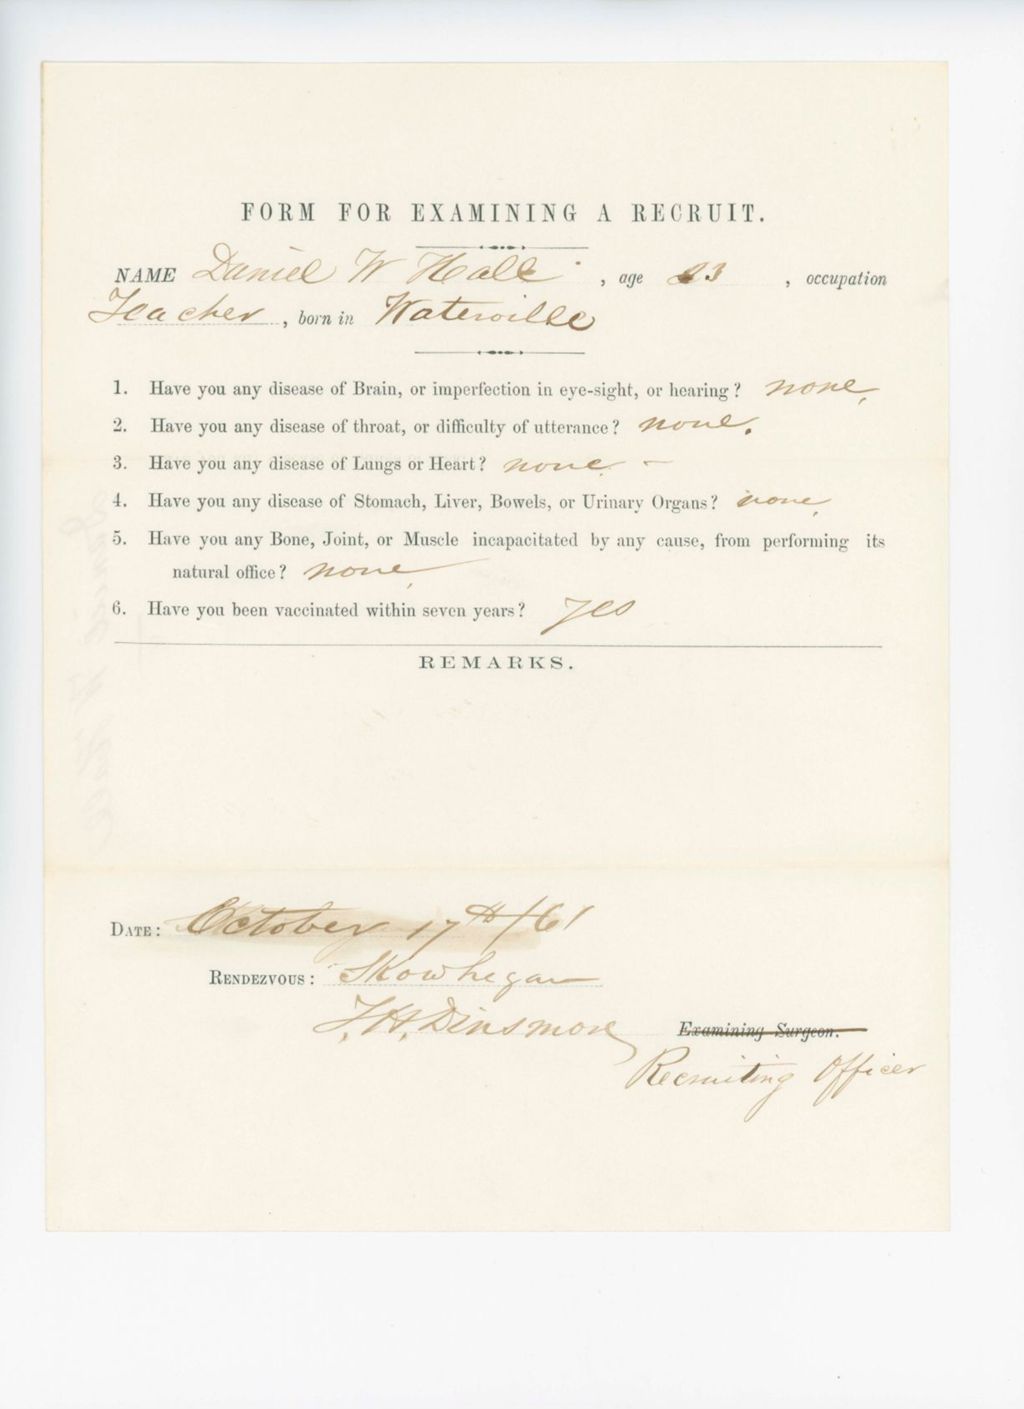 FORM FOR EXAMINING A RECRUIT.
NAME Daniel W Hall , age 23 , occupation
Teacher , born in Waterville
1. Have you any disease of Brain, or imperfection in eye-sight, or hearing? none.
2. Have you any disease of throat, or difficulty of utterance? none.
3. Have you any disease of Lungs or Heart? none. -
4. Have you any disease of Stomach, Liver, Bowels, or Urinary Organs? none.
5. Have you any Bone, Joint, or Muscle incapacitated by any cause, from performing its
natural office? none.
6. Have you been vaccinated within seven years? yes
REMARKS.
DATE: October 17th /61
RENDEZVOUS: Skowhegan
F. H. Dinsmore Examining Surgeon.
Recruiting Officer